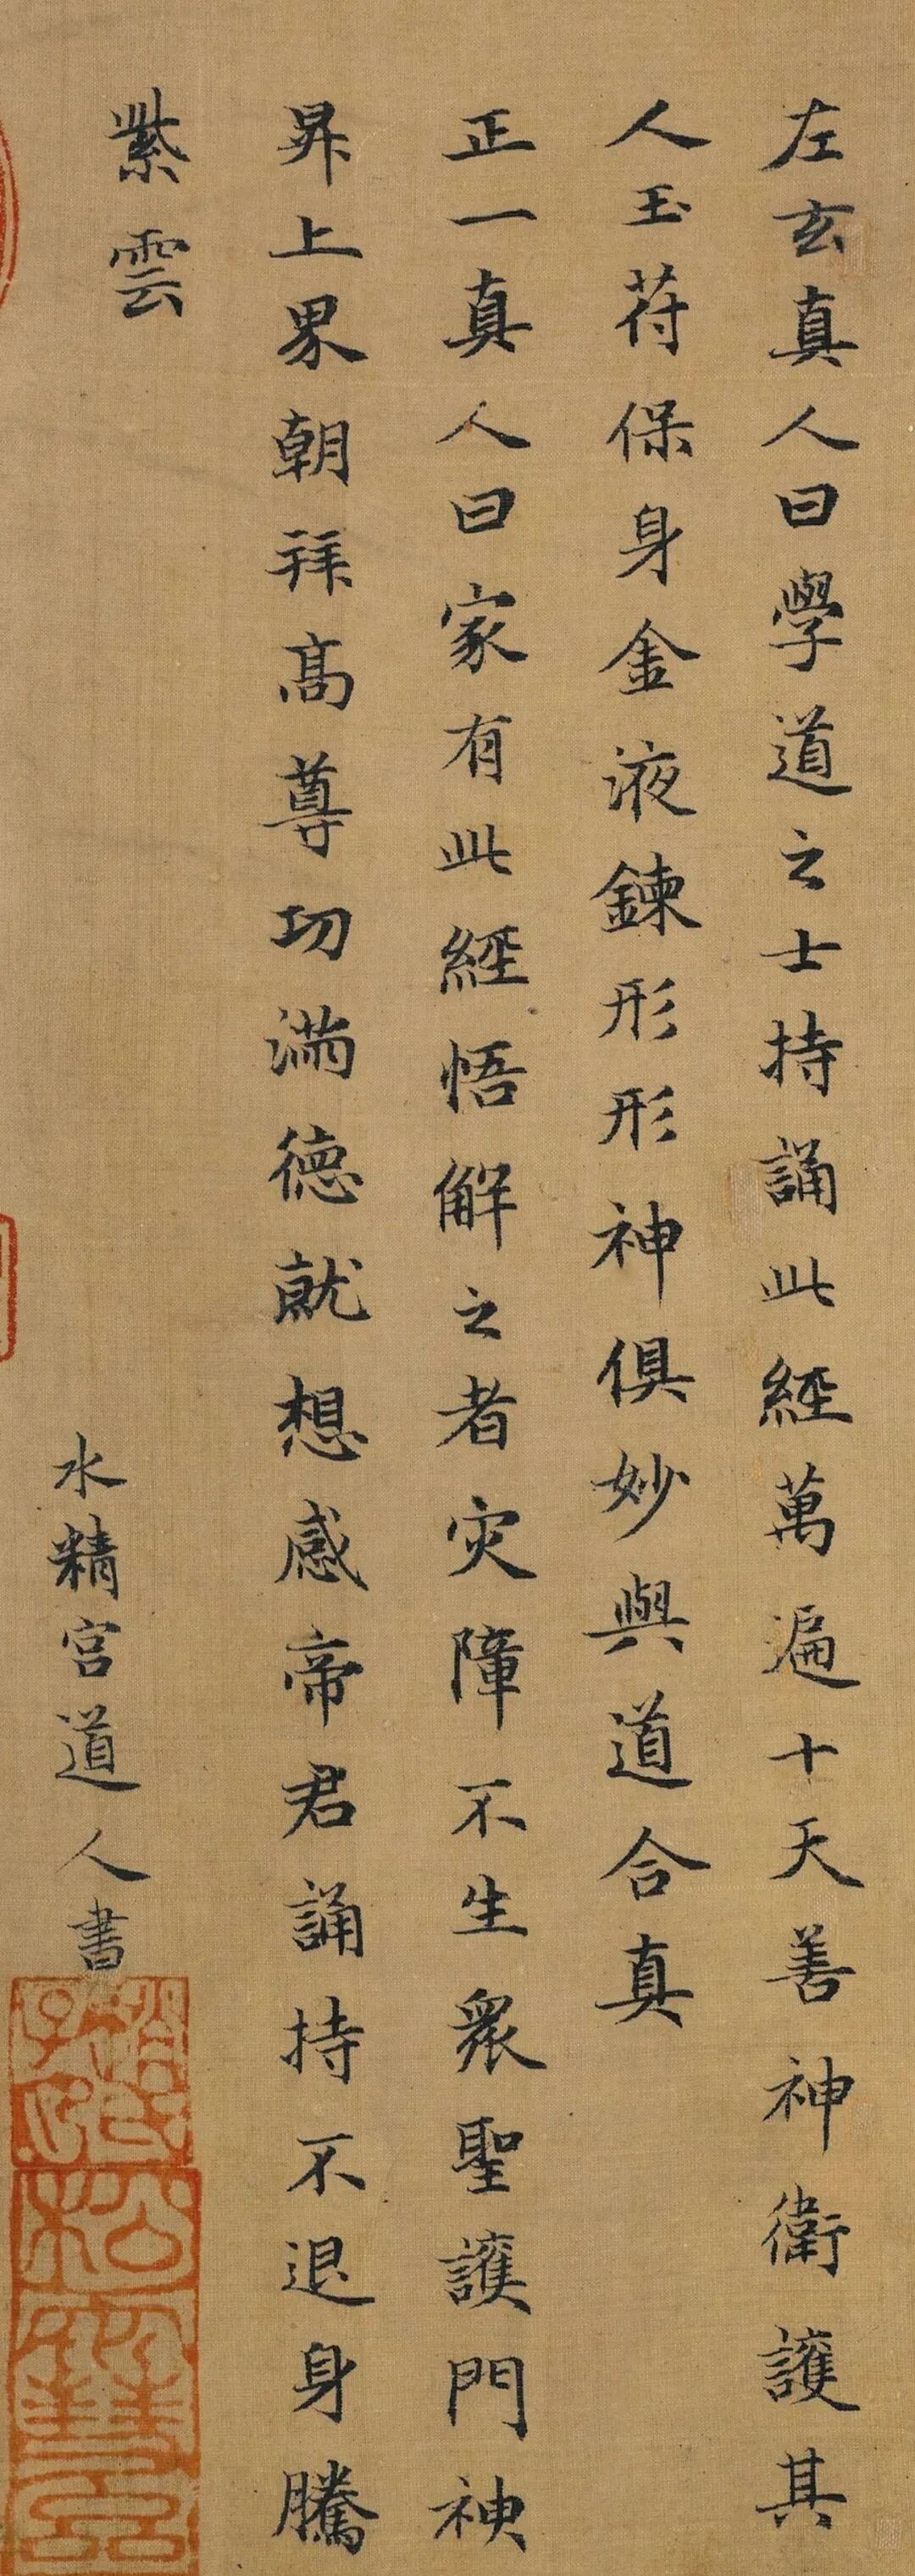 左玄真人曰學道之士持誦此經萬遍十天善神衛護其
人玉符保身金液鍊形形神俱妙與道合真
正一真人曰家有此經悟解之者灾障不生衆聖護門神
昇上界朝拜高尊功滿德就想感帝君誦持不退身騰
紫雲
水精宮道人書
趙氏子印
松雪齋